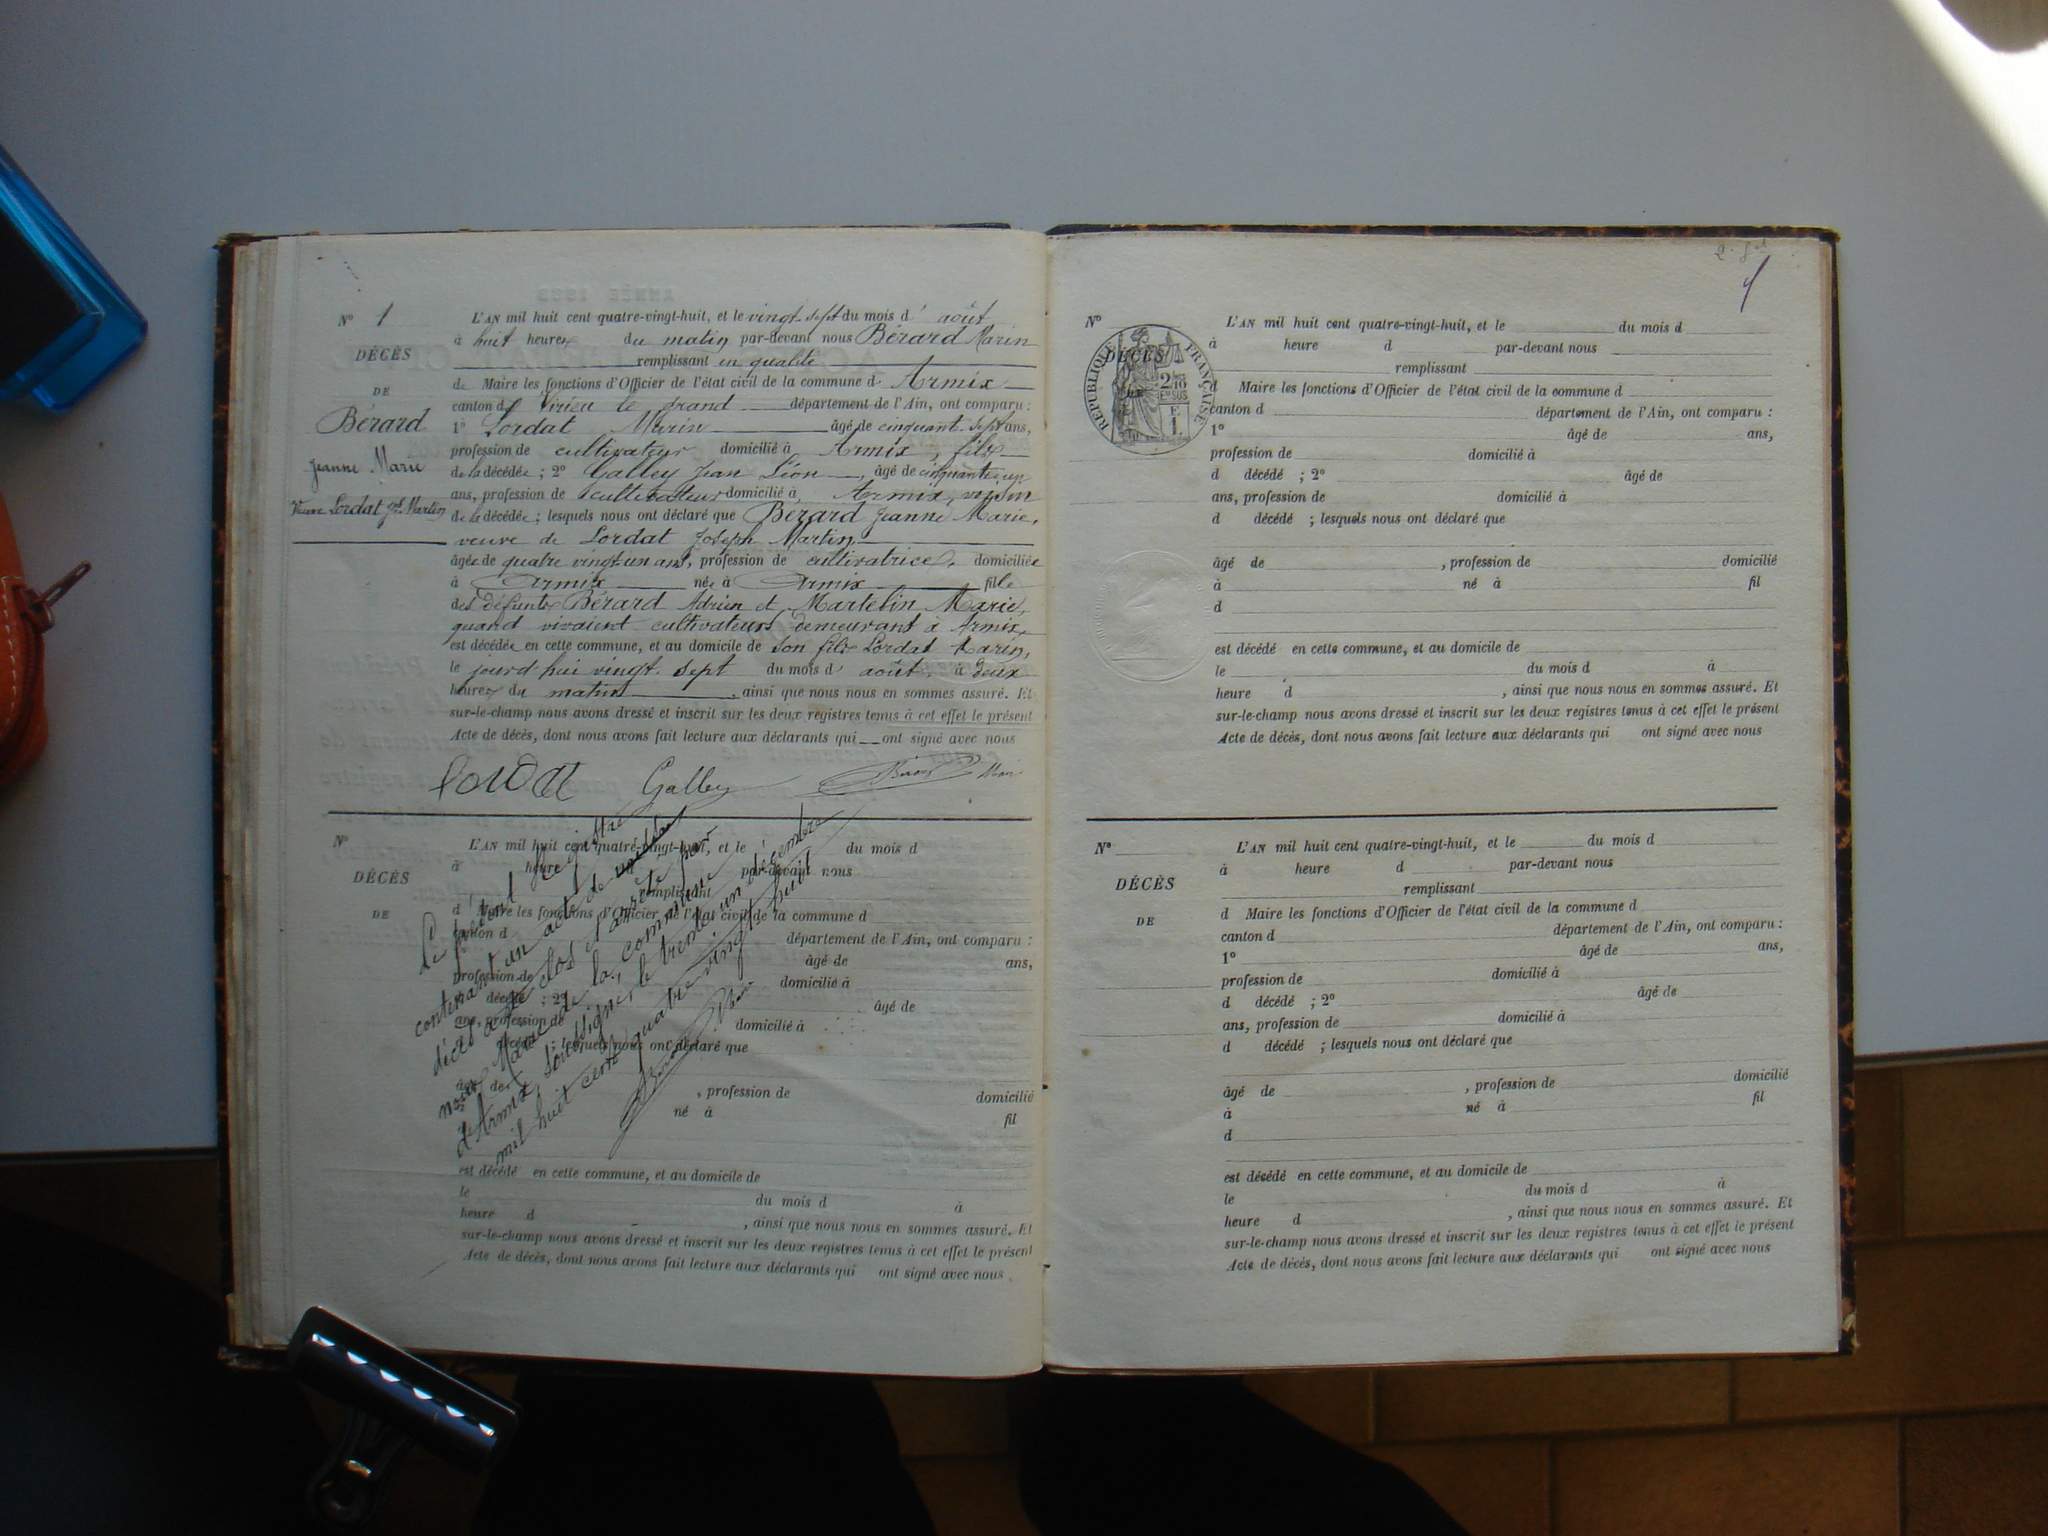 N° 1
DÉCÈS
DE
Bérard
Jeanne Marie
Veuve Lordat Jph Martin
L'AN mil huit cent quatre-vingt-huit, et le vingt-sept du mois d' août
à huit heures du matin par-devant nous Bérard Marin
remplissant en qualité
de Maire les fonctions d'Officier de l'état civil de la commune d Armix
canton d Virieu le grand département de l'Ain, ont comparu :
1° Lordat Marin âgé de cinquante-sept ans,
profession de cultivateur domicilié à Armix, fils
de la décédée ; 2° Galley Jean Léon, âgé de cinquante un
ans, profession de cultivateur domicilié à Armix, voisin
de la décédée ; lesquels nous ont déclaré que Bérard Jeanne Marie,
veuve de Lordat Joseph Martin
âgée de quatre vingt un ans, profession de cultivatrice, domiciliée
à Armix née à Armix fille
des défunts Bérard Adrien et Martelin Marie,
quand vivaient cultivateurs demeurant à Armix,
est décédée en cette commune, et au domicile de son fils Lordat Marin,
le jourd'hui vingt-sept du mois d' août à deux
heures du matin, ainsi que nous nous en sommes assuré. Et
sur-le-champ nous avons dressé et inscrit sur les deux registres tenus à cet effet le présent
Acte de décès, dont nous avons fait lecture aux déclarants qui ont signé avec nous
Lordat Galley Bérard Marin
N°
DÉCÈS
DE
L'AN mil huit cent quatre-vingt-huit, et le du mois d
à heure d par-devant nous
remplissant
d Maire les fonctions d'Officier de l'état civil de la commune d
canton d département de l'Ain, ont comparu :
âgé de ans,
profession de domicilié à
d décédé ; 2° âgé de
ans, profession de domicilié à
d décédé ; lesquels nous ont déclaré que
âgé de , profession de domicilié
né à fil
est décédé en cette commune, et au domicile de
le du mois d à
heure d , ainsi que nous nous en sommes assuré. Et
sur-le-champ nous avons dressé et inscrit sur les deux registres tenus à cet effet le présent
Acte de décès, dont nous avons fait lecture aux déclarants qui ont signé avec nous
Le présent Registre
contenant un acte de
décès a été clos et arrêté par
nous Maire de la commune
d'Armix, soussigné, le trente un décembre
mil huit cent quatre vingt huit
Bérard Marin
N°
DÉCÈS
DE
RÉPUBLIQUE FRANÇAISE
2/10 EN SUS
L'AN mil huit cent quatre-vingt-huit, et le du mois d
à heure d par-devant nous
remplissant
d Maire les fonctions d'Officier de l'état civil de la commune d
canton d département de l'Ain, ont comparu :
1° âgé de ans,
profession de domicilié à
d décédé ; 2° âgé de
ans, profession de domicilié à
d décédé ; lesquels nous ont déclaré que
âgé de , profession de domicilié
à né à fil
d
est décédé en cette commune, et au domicile de
le du mois d à
heure d , ainsi que nous nous en sommes assuré. Et
sur-le-champ nous avons dressé et inscrit sur les deux registres tenus à cet effet le présent
Acte de décès, dont nous avons fait lecture aux déclarants qui ont signé avec nous
N°
DÉCÈS
DE
L'AN mil huit cent quatre-vingt-huit, et le du mois d
à heure d par-devant nous
remplissant
d Maire les fonctions d'Officier de l'état civil de la commune d
canton d département de l'Ain, ont comparu :
1° âgé de ans,
profession de domicilié à
d décédé ; 2° âgé de
ans, profession de domicilié à
d décédé ; lesquels nous ont déclaré que
âgé de , profession de domicilié
à né à fil
d
est décédé en cette commune, et au domicile de
le du mois d à
heure d , ainsi que nous nous en sommes assuré. Et
sur-le-champ nous avons dressé et inscrit sur les deux registres tenus à cet effet le présent
Acte de décès, dont nous avons fait lecture aux déclarants qui ont signé avec nous